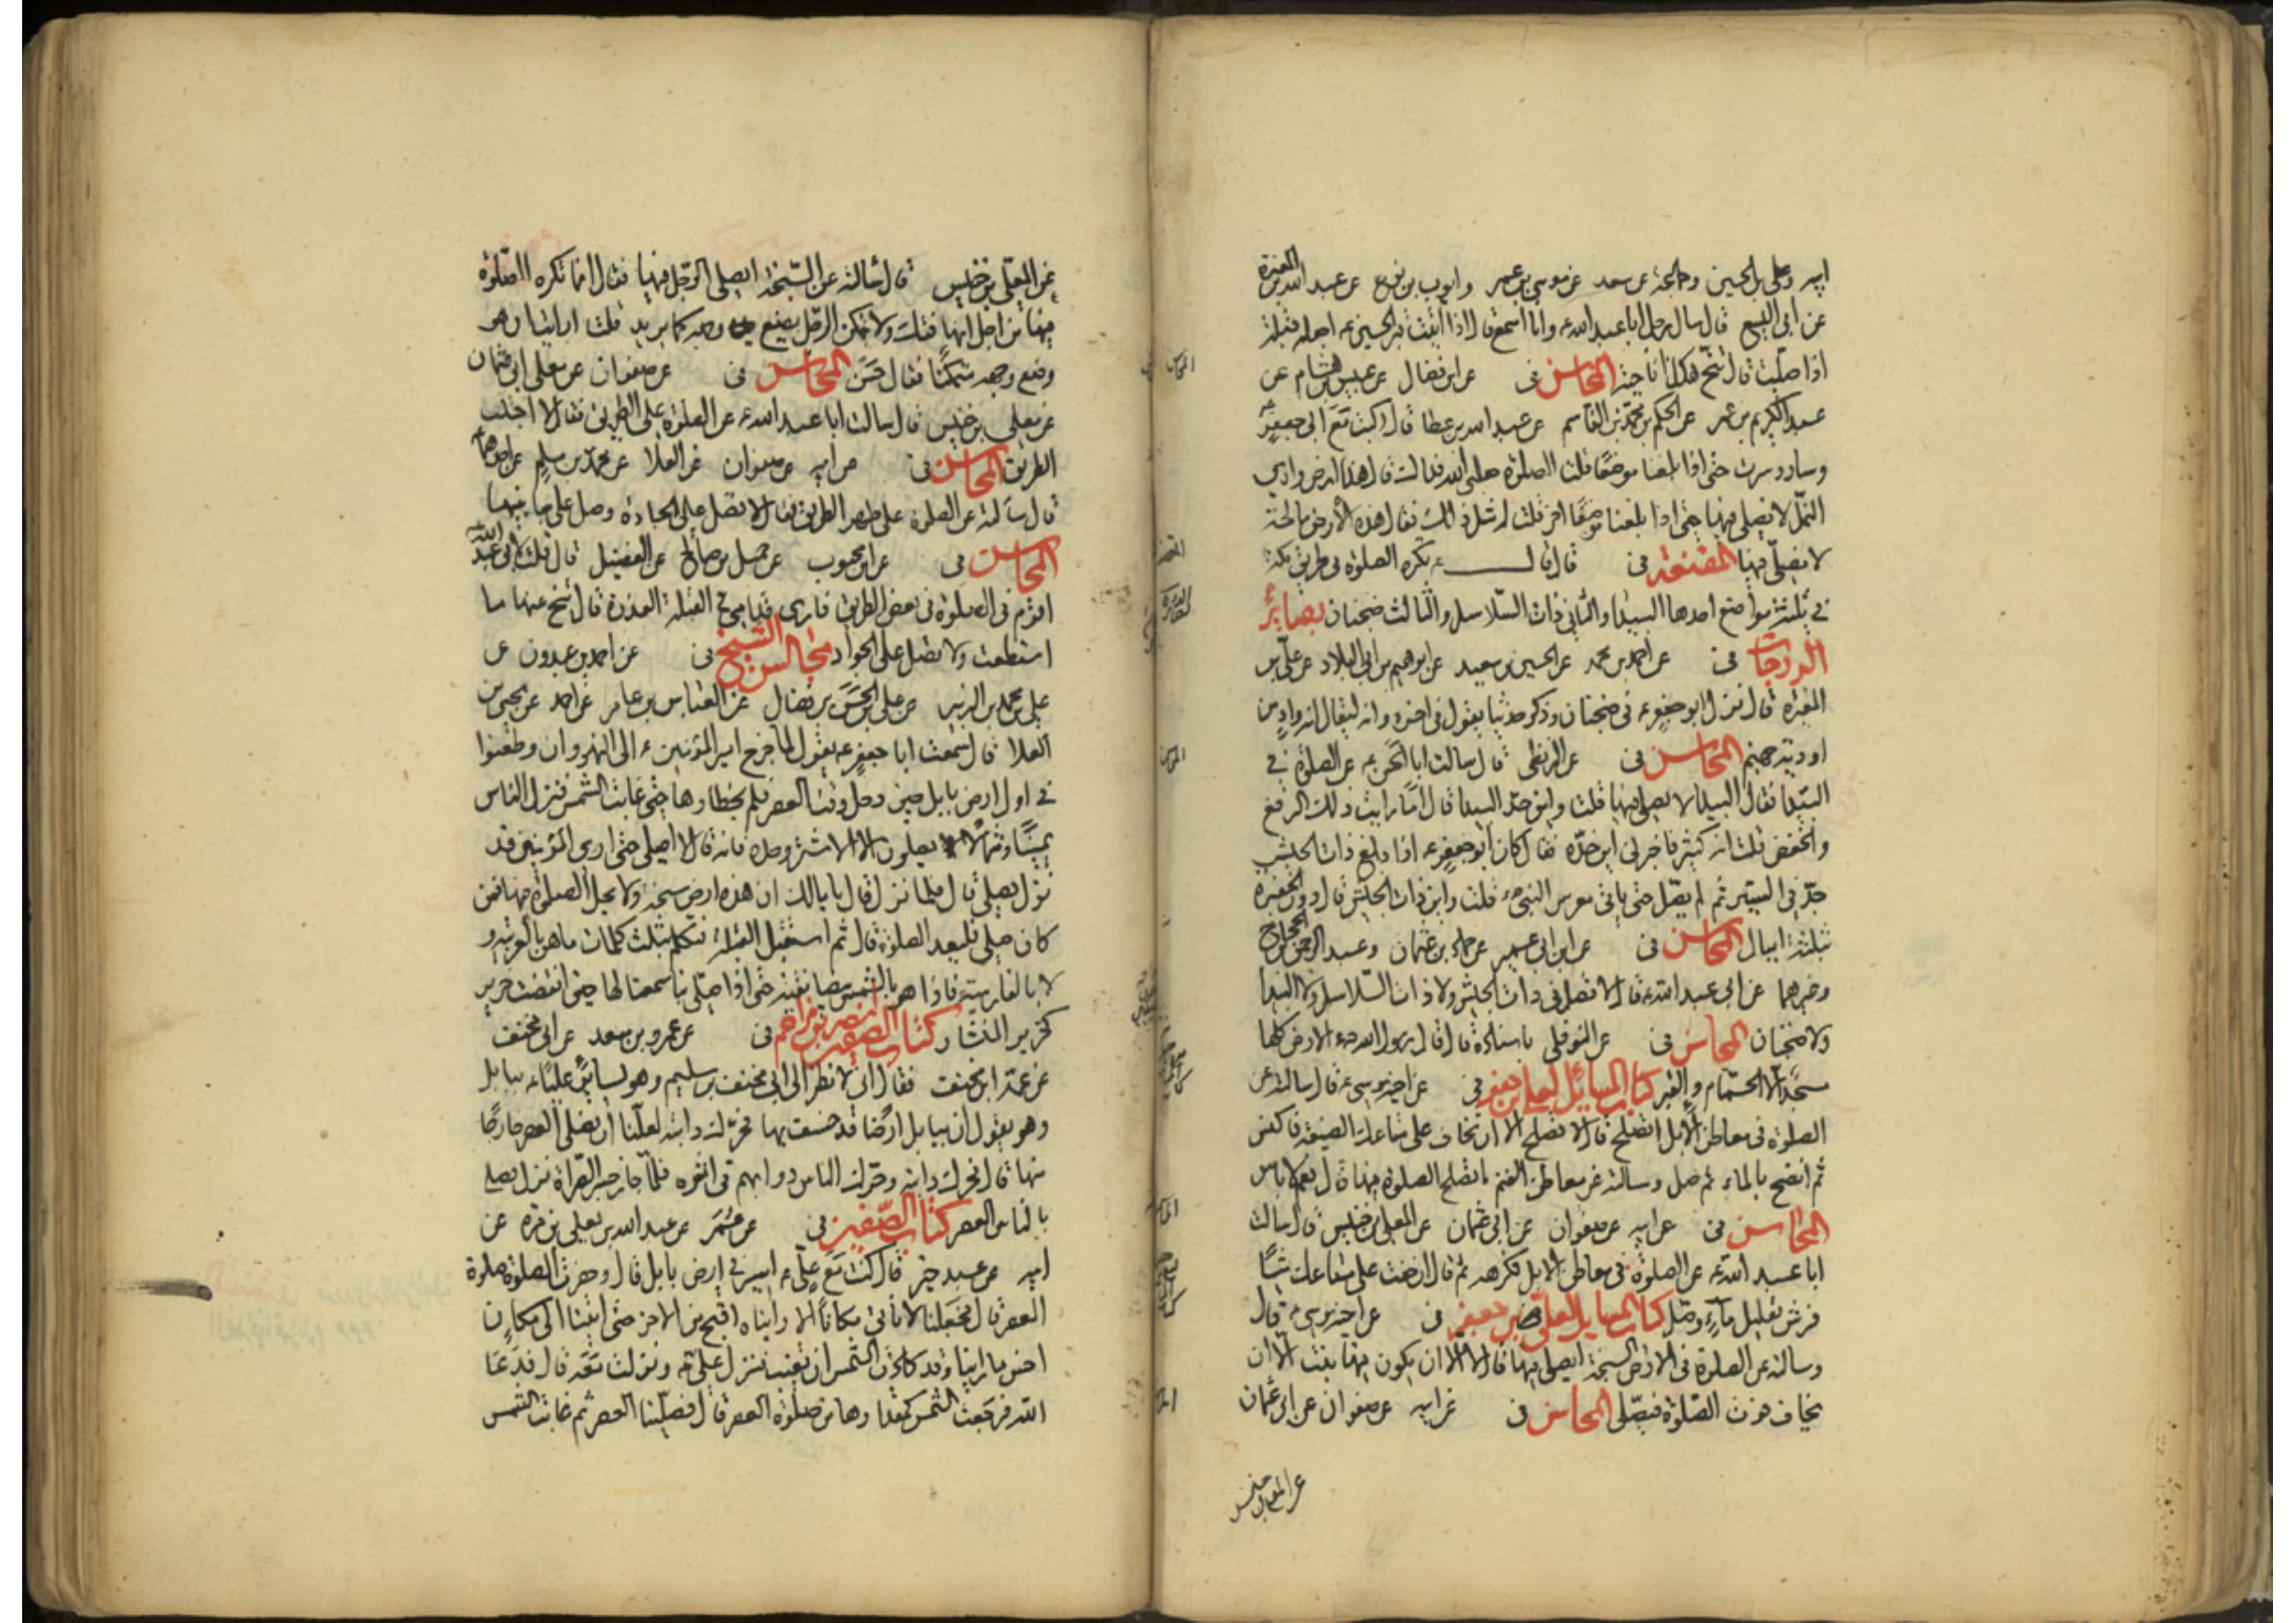 ابيه وعلي بن الحسين وجماعة عن سعد عن موسى بن عمر وايوب بن نوح عن عبد الله بن المغيرة
عن ابي اليسع قال سال رجل ابا عبد الله ع وانا اسمع قال اذا اتيت قبر الحسين ع اجعله قبلة
اذا صليت قال تنح هكذا ناحية المحاسن في عن ابن فضال عن عبيس بن هشام عن
عبد الكريم بن عمر عن الحكم بن محمد بن القاسم عن عبد الله بن عطا قال ركبت مع ابي جعفر ع
وسار وسرت حتى اذا بلغنا موضعا قلت الصلوة جعلني الله فداك قال هذا ارض وادي
النمل لا يصلي فيها حتى اذا بلغنا موضعا اخر قلت له مثل ذلك فقال هذه الارض مالحة
لا يصلى فيها المقنعة في قال قال ع يكره الصلوة في طريق مكة
في ثلثة مواضع احدها البيدا والثاني ذات السلاسل والثالث ضجنان بصائر
الدرجات في عن احمد بن محمد عن الحسين بن سعيد عن ابرهيم بن ابي البلاد عن علي بن
المغيرة قال نزل ابو جعفر ع في ضجنان وذكر حديثا يقول في اخره وانه ليقال انه واد من
اودية جهنم المحاسن في عن البزنطي قال سالت ابا الحسن ع عن الصلوة في
البيدا فقال البيدا لا يصلى فيها قلت واين حد البيدا قال اما رايت ذلك الرفع
والخفض قلت انه كثير فاخبرني اين حده فقال كان ابو جعفر ع اذا بلغ ذات الجيش
جد في السير ثم لم يصل حتى ياتي معرس النبي ص قلت واين ذات الجيش قال دون الحفيرة
بثلثة اميال المحاسن في عن ابن ابي عمير عن حماد بن عثمان وعبد الرحمن بن الحجاج
وغيرهما عن ابي عبد الله ع قال لا تصل في ذات الجيش ولا ذات السلاسل ولا البيدا
ولا ضجنان المحاسن في عن النوفلي باسناده قال قال رسول الله ص الارض كلها
مسجد الا الحمام والقبر كتاب المسائل لعلي بن جعفر في عن اخيه موسى ع قال سالته عن
الصلوة في معاطن الابل اتصلح قال لا تصلح الا ان تخاف على متاعك الضيعة فاكنس
ثم انضح بالماء ثم صل وسالته عن معاطن الغنم اتصلح الصلوة فيها قال نعم لا باس
المحاسن في عن ابيه عن صفوان عن ابي عثمان عن المعلى بن خنيس قال سالت
ابا عبد الله ع عن الصلوة في معاطن الابل فكرهه ثم قال ان خفت على متاعك شيئا
فرش بقليل ماء وصل كتاب المسايل لعلي بن جعفر في عن اخيه موسى ع قال
وسالته عن الصلوة في الارض السبخة ايصلى فيها قال لا الا ان يكون فيها نبت الا ان
يخاف فوت الصلوة فيصلى المحاسن في عن ابيه عن صفوان عن ابي عثمان
عن المعلى بن خنيس
عن المعلى بن خنيس قال سالته عن السبخة ايصلي الرجل فيها فقال انما تكره الصلوة
فيها من اجل انها فتك ولا تمكن الرجل يضع وجهه كما يريد قلت ارايت ان هو
وضع وجهه متمكنا فقال حسن المحاسن في عن صفوان عن معلى ابي عثمان
عن معلى بن خنيس قال سالت ابا عبد الله ع عن الصلوة على الطريق فقال لا اجتنب
الطريق المحاسن في عن ابيه عن صفوان عن العلا عن محمد بن مسلم عن احدهما
قال سالته عن الصلوة على ظهر الطريق فقال لا تصل على الجادة وصل على جانبيها
المحاسن في عن ابن محبوب عن جميل بن صالح عن الفضيل قال قلت لابي عبد الله
اقوم في الصلوة في بعض الطريق فارى قدامي في القبلة العذرة قال تنح عنها ما
استطعت ولا تصل على الجواد مجالس الشيخ في عن احمد بن عبدون عن
علي بن محمد بن الزبير عن علي بن الحسن بن فضال عن العباس بن عامر عن احمد عن يحيى بن
العلا قال سمعت ابا جعفر ع يقول لما خرج امير المؤمنين ع الى النهروان وطعنوا
في اول ارض بابل حين دخل وقت العصر فلم يخطاوها حتى غابت الشمس فنزل الناس
يمينا وشمالا يصلون الا الاشتر وحده فانه قال لا اصلي حتى ارى امير المؤمنين قد
نزل يصلي قال فلما نزل قال يا مالك ان هذه ارض سبخة ولا يحل الصلوة فيها فمن
كان صلى فليعد الصلوة قال ثم استقبل القبلة فتكلم بثلث كلمات ما هن بالعربية و
لا بالفارسية فاذا هو بالشمس بيضا نقية حتى اذا صلى بنا سمعنا لها حين انقضت خرير
كخرير المنشار كتاب الصفين لنصر بن مزاحم في عن عمرو بن سعد عن ابي مخنف
عن عمه ابن مخنف فقال اني لانظر الى ابي مخنف بن سليم وهو يساير عليا ع ببابل
وهو يقول ان ببابل ارضا قد خسف بها فحرك دابتك لعلنا ان نصلي العصر خارجا
منها قال فحرك دابته وحرك الناس دوابهم في اثره فلما جاز جسر الصراة نزل فصلى
بالناس العصر كتاب الصفين في عن عمر عن عبد الله بن يعلى بن مرة عن
ابيه عن عبد خير قال كنت مع علي ع اسير في ارض بابل قال وحضرت الصلوة صلوة
العصر قال فجعلنا لا ناتي مكانا الا رايناه اقبح من الاخر حتى اتينا الى مكان
احسن ما راينا وقد كادت الشمس ان تغيب فنزل علي ع ونزلت معه قال فدعا
الله فرجعت الشمس كمقدارها من صلوة العصر قال فصلينا العصر ثم غابت الشمس